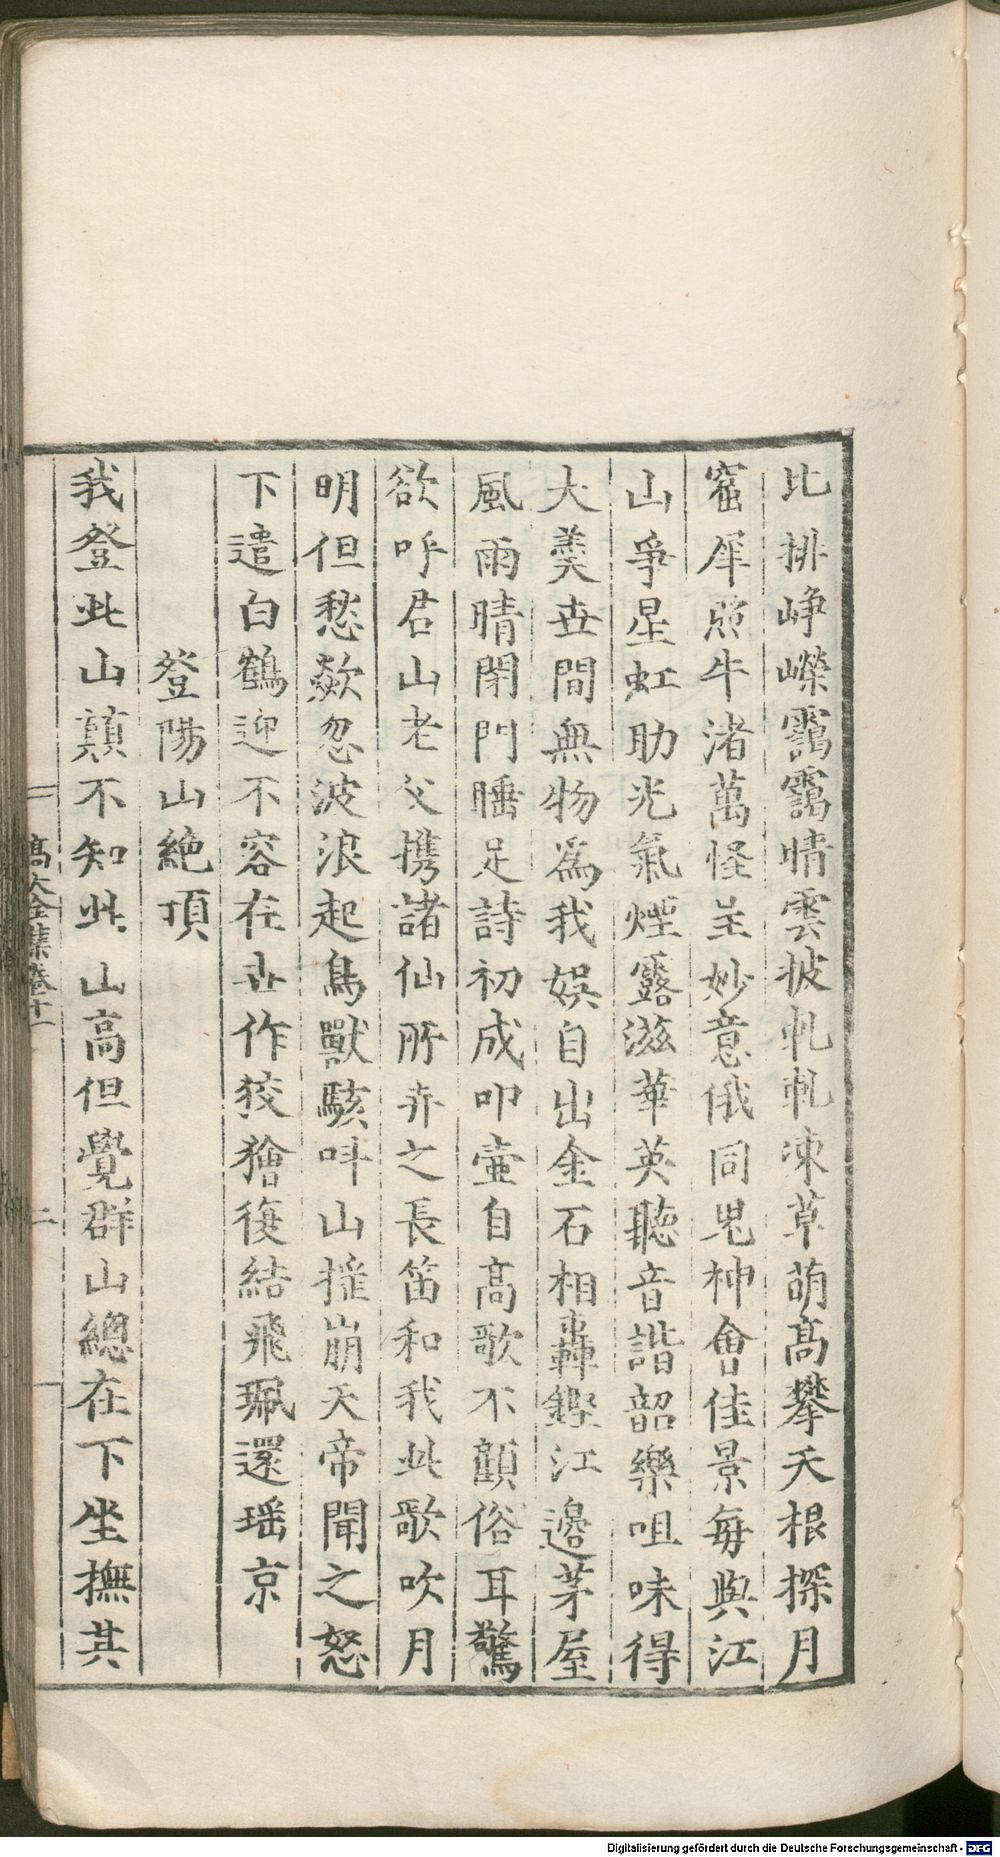 比排崢嶸靄靄晴雲披軋軋凍草萌高攀天根探月
窟犀照牛渚萬怪呈妙意俄同鬼神會佳景每與江
山爭星虹助光氣煙露滋華英聽音諧韶樂咀味得
大羹世間無物為我娛自出金石相轟鏗江邊茅屋
風雨晴閉門睡足詩初成叩壺自高歌不顧俗耳驚
欲呼君山老父攜諸仙所弄之長笛和我此歌吹月
明但愁欻忽波浪起鳥獸駭呌山搖崩天帝聞之怒
下遣白鶴迎不容在世作狡獪復結飛珮還瑤京
登陽山絶頂
我登此山巔不知此山高但覺群山總在下坐撫其
高太全集卷十一
二
Digitalisierung gefördert durch die Deutsche Forschungsgemeinschaft - DFG